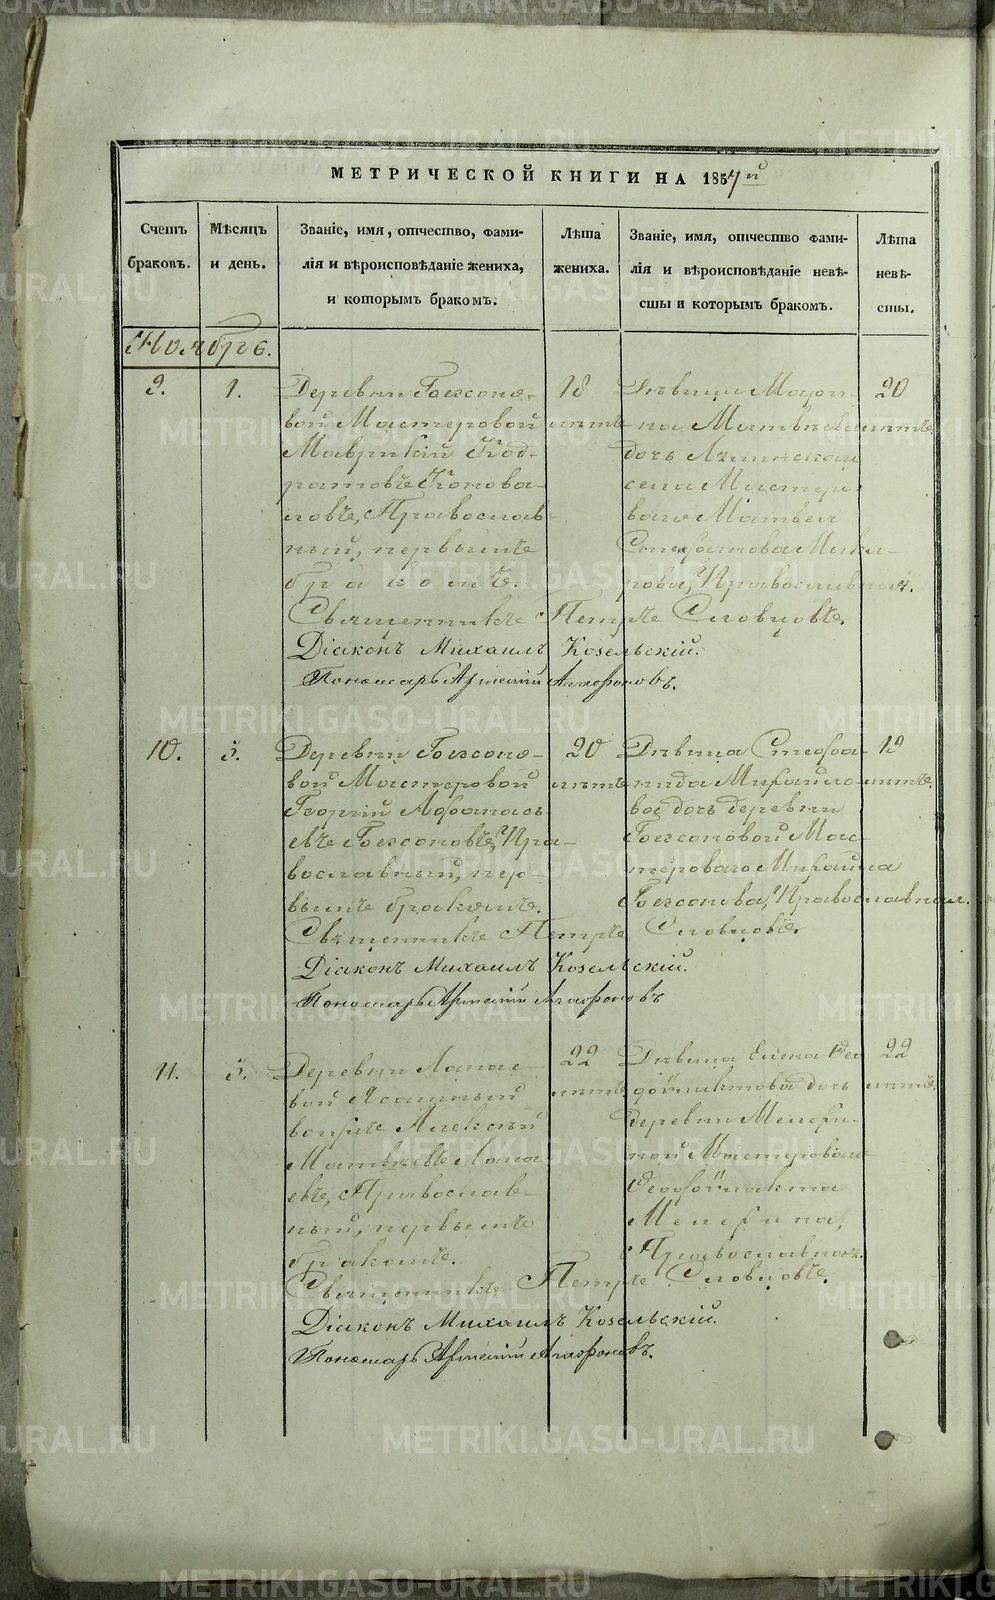 МЕТРИЧЕСКОЙ КНИГИ НА 1857й
Счетъ браковъ.
Мѣсяцъ и день.
Званіе, имя, отчество, фами-
лія и вѣроисповѣданіе жениха,
и которымъ бракомъ.
Лѣта
жениха.
Званіе, имя, отчество фами-
лія и вѣроисповѣданіе невѣ-
сты и которымъ бракомъ.
Лѣта
невѣ-
сты.
Ноябрь.
9.
1.
Деревни
вой Мастеровой
Маврикій Код-
ратовъ Конова-
ловъ, Православ-
ный, первымъ
бракомъ.
18
лѣтъ
Дѣвица
на Матвѣева
дочь
села Мастеро-
ваго Матвея
Православная.
20
лѣтъ.
Священникъ Петръ Словцовъ.
Діаконъ Михаилъ Козельскій.
Пономарь Арсеній Агафоновъ.
10.
5.
Деревни
вой Мастеровой
Георгій Афанась
евъ Пра-
вославный, пер
вымъ бракомъ.
20
лѣтъ
Дѣвица Стефа-
нида Михайло-
ва дочь деревни
Мас-
тероваго Михаила
Православная.
19
лѣтъ.
Священникъ Петръ Словцовъ.
Діаконъ Михаилъ Козельскій.
Пономарь Арсеній Агафоновъ
11.
5.
Деревни Лапае-
вой
Алексѣй
Матвѣевъ Лапа
евъ, Православ-
ный, первымъ
бракомъ.
22
лѣтъ
Дѣвица Елена Фео
дочь
деревни
ной Мастероваго
Православная.
22
лѣтъ.
Священникъ Петръ Словцовъ.
Діаконъ Михаилъ Козельскій.
Пономарь Арсеній Агафоновъ.
METRIKI.GASO-URAL.RU